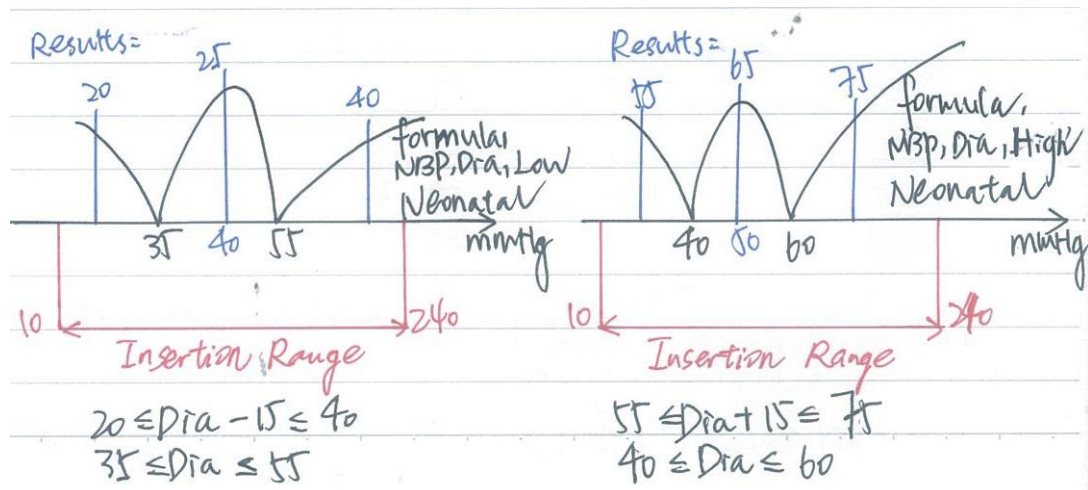 Results=
20
25
40
formula,
NBP, Dia, Low
Neonatal
35
40
55
mmHg
10
240
Insertion Range
20 ≤ Dia - 15 ≤ 40
35 ≤ Dia ≤ 55
Results=
55
65
75
formula,
NBP, Dia, High
Neonatal
40
50
60
mmHg
10
240
Insertion Range
55 ≤ Dia + 15 ≤ 75
40 ≤ Dia ≤ 60